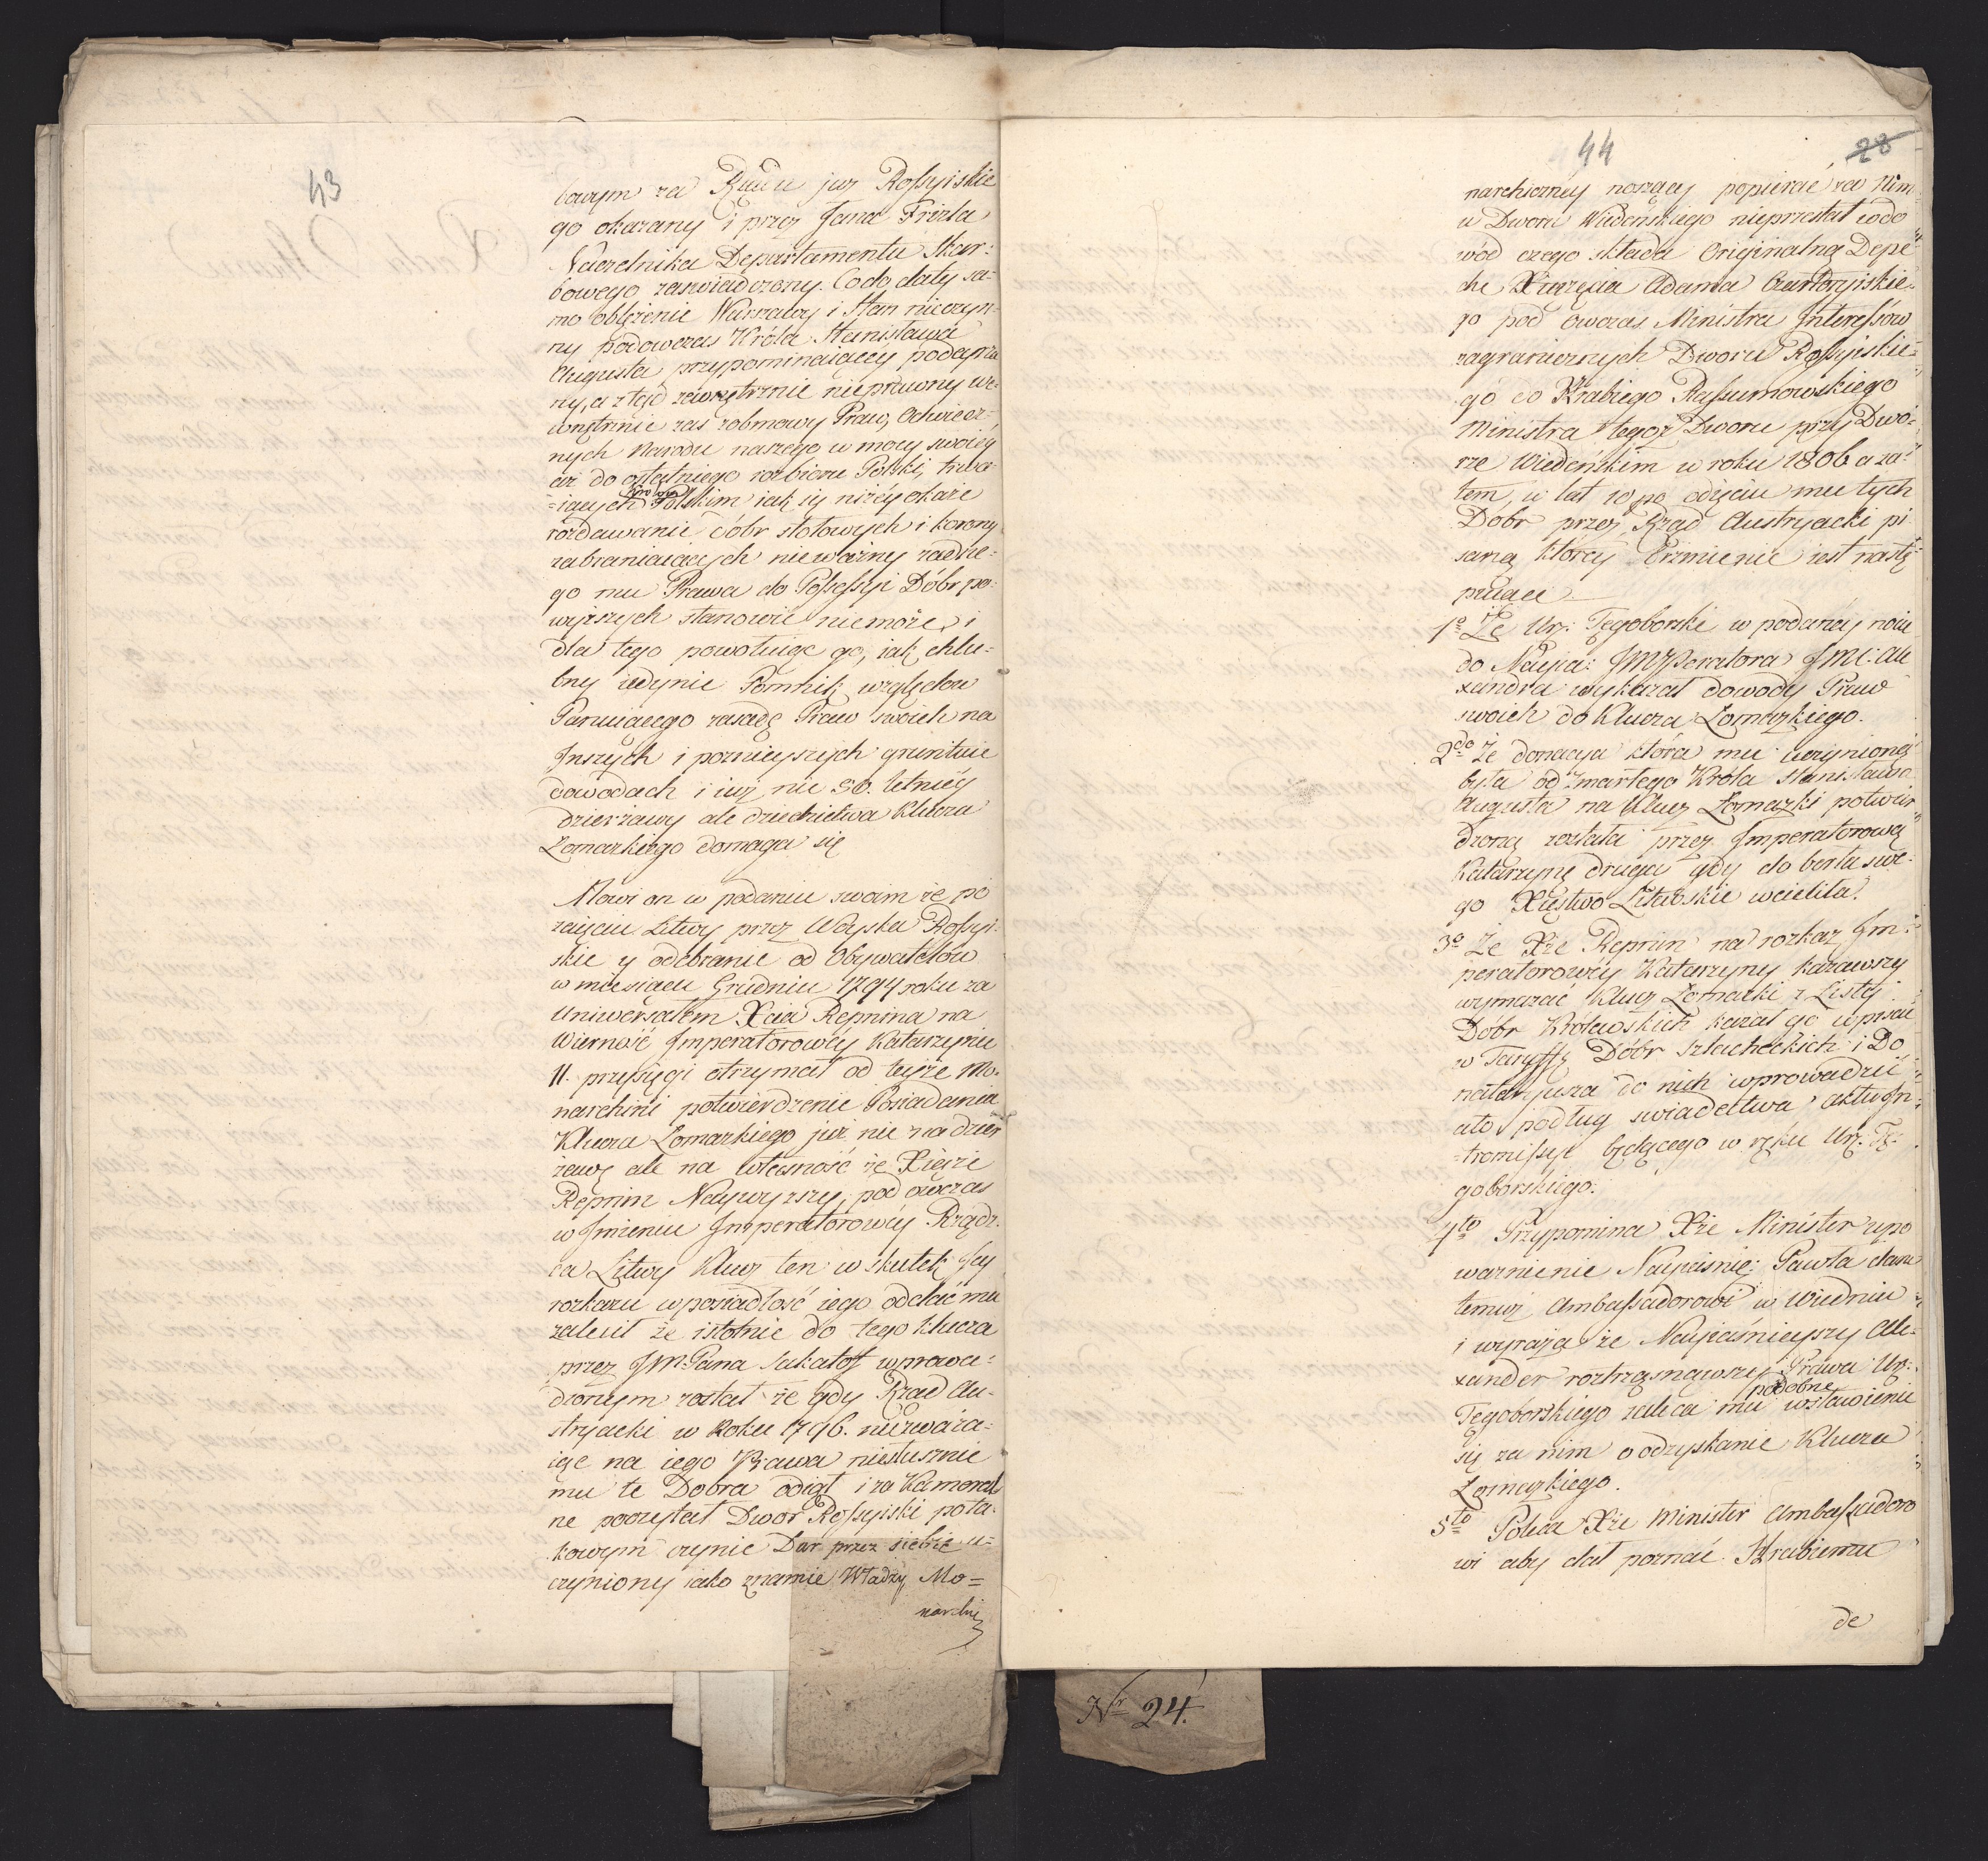 43
bowym za Rządu już Rossyiskie
go okazany i przez Jana Frizla
Naczelnika Departamentu Skar:
bowego zaswiadczony. Co do daty sa=
mo oblężenie Warszawy i Stan nieczyn=
ny podowczas Króla Stanisława
Augusta przypominaiącey podeyrza
ny, a ztąd zewnętrznie nieprawny we=
wnętrznie zas zobmowy Praw, Odwiecz=
nych Narodu naszego w mocy swoiey
aż do ostatniego rozbioru Polski, trwa=
=iących Polskim iak się niżey okaże
rozdawanie dóbr stołowych i korony
zabraniaiących nieważny żadne=
go mu Prawa do Possessyi Dóbr po=
wyższych stanowić niemoże, i
dla tego powołuiąc go, iak chlu=
bny iedynie Pomnik względów
Panuiącego zasadę Praw swoich na
Inszych i poznieyszych gruntuie
dowodach i iuż nie 50. letniey
dzierżawy ale dziedzictwa Klucza
Łomazkiego domaga się
Mowi on w podaniu swoim że po
zaięciu Litwy przez Woyska Rossyi:
skie y odebranie od Obywatelów
w miesiącu Grudniu 1794 roku za
Uniwersałem Xcia Repnina na
Wierność Imperatorowey Katarzynie
II. przysięgi otrzymał od teyże Mo=
narchini potwierdzenie Posiadania
Klucza Łomazkiego już nie na dzier
żawę ale na własność że Xiąże
Repnin Naywyższy, pod owczas
w Imieniu Imperatorowey Rządz=
ca Litwy Klucz ten w skutek Jey
rozkazu w posiadłość iego oddać mu
zalecił że istotnie do tego Klucza
przez JM Pana Sakatoff wprowa=
dzonym został że gdy Rząd Au=
stryacki w Roku 1796. niezważa=
iąc na iego Prawa niesłusznie
mu te Dobra odiął i za Kameral
ne poczytał Dwór Rossyiski pota=
kowym czynie Dar przez siebie u=
czyniony iako znamie Władzy Mo=
narchi
44 28
narchiczney noszący popierać za Nim
u Dworu Wiedeńskiego nieprzestał wdo
wód czego składa Originalną Depe
che Xiążęcia Adama Czartoryiskie=
go pod owczas Ministra Interessów
zagranicznych Dworu Rossyiskie=
go do Hrabiego Rassumowskiego
Ministra tegoż Dworu przy Dwo=
rze Wiedeńskim w roku 1806 a za=
tem, w lat 10 po odięciu mu tych
Dóbr przez Rząd Austryacki pi
saną którey Brzmienie iest nastę
puiące
1o Że Urz: Tęgoborski w podaney nocie
do Nayia: JMperatora JMci Ale
xandra wykazał dowody Praw
swoich do Klucza Łomazkiego.
2do Że donacya która mu uczynioną
była od zmarłego Króla Stanisława
Augusta na Klucz Łomazki potwier
dzoną została przez Imperatorową
Katarzynę drugą gdy do berła swe=
go Xięstwo Litewskie wcieliła.
3o Że Xże Repnin na rozkaz Im=
peratorowey Katarzyny kazawszy
wymazać Klucz Łomazki z Listy
Dóbr Królewskich kazał go wpisać
w Taryffę Dóbr Szlacheckich i Do
nataryusza do nich wprowadzić
a to podług swiadectwa aktu In=
=tromissyi będącego w ręku Urz: Tę=
goborskiego.
4to Przypomina Xże Minister upo
ważnienie Nayiasnię: Pawła dane
temuż Ambassadorowi w Wiedniu
i wyraża że Nayiaśnieyszy Ale=
xander roztrząsnąwszy Prawa Urz:
Tęgoborskiego zaleca mu podobne wstawienie
się za nim o odzyskanie Klucza
Łomazkiego.
5to Poleca Xże Minister Ambassadoro
wi aby dał poznać Hrabiemu
de
Nr 24.